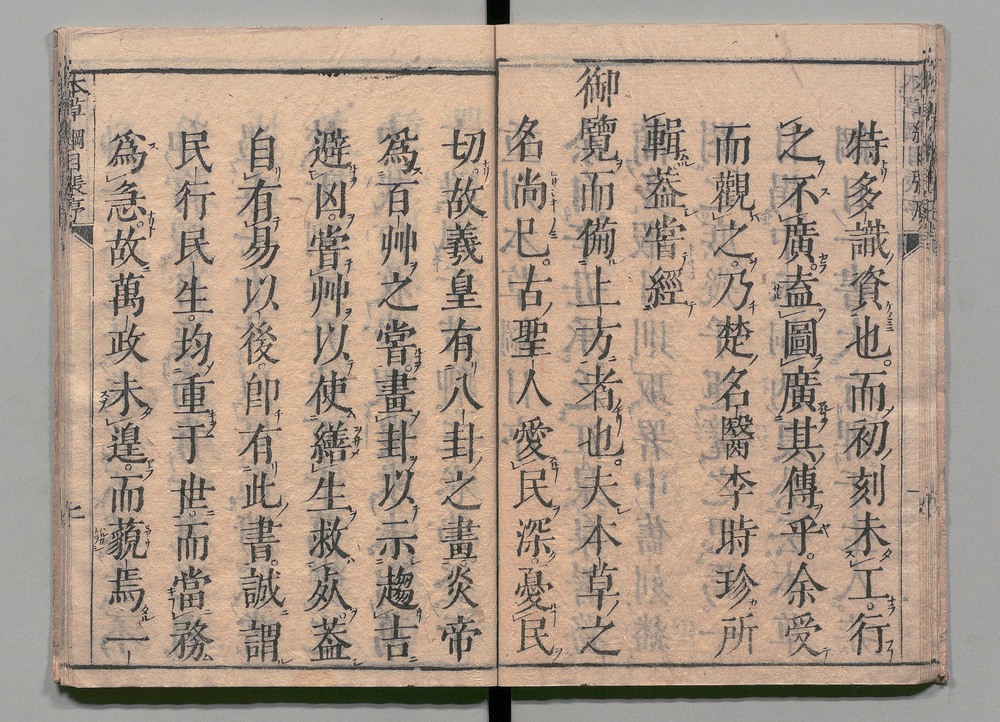 特多識資也。而初刻未工。行
之不廣。盍圖廣其傳乎。余受
而觀之。乃楚名醫李時珍所
輯。葢嘗經
御覽而備上方者也。夫本草之
名尚巳。古聖人愛民深。憂民
切。故羲皇有八卦之畫。炎帝
爲百艸之嘗。畫卦以示趨吉
避凶。嘗艸以使繕生救
葢
自有易以後。卽有此書。誠謂
民行民生。均重于世。而當務
爲急。故萬政未遑。而藐焉一
本草綱目張序